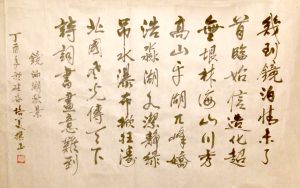 幾到鏡泊情未了
首臨始信造化超
無垠林海山川秀
高山平湖八峰嬌
浩淼湖水潔静緑
吊水瀑布掀狂濤
北國風光傳天下
詩詞書畫意難到
鏡泊湖秋景
丁酉年